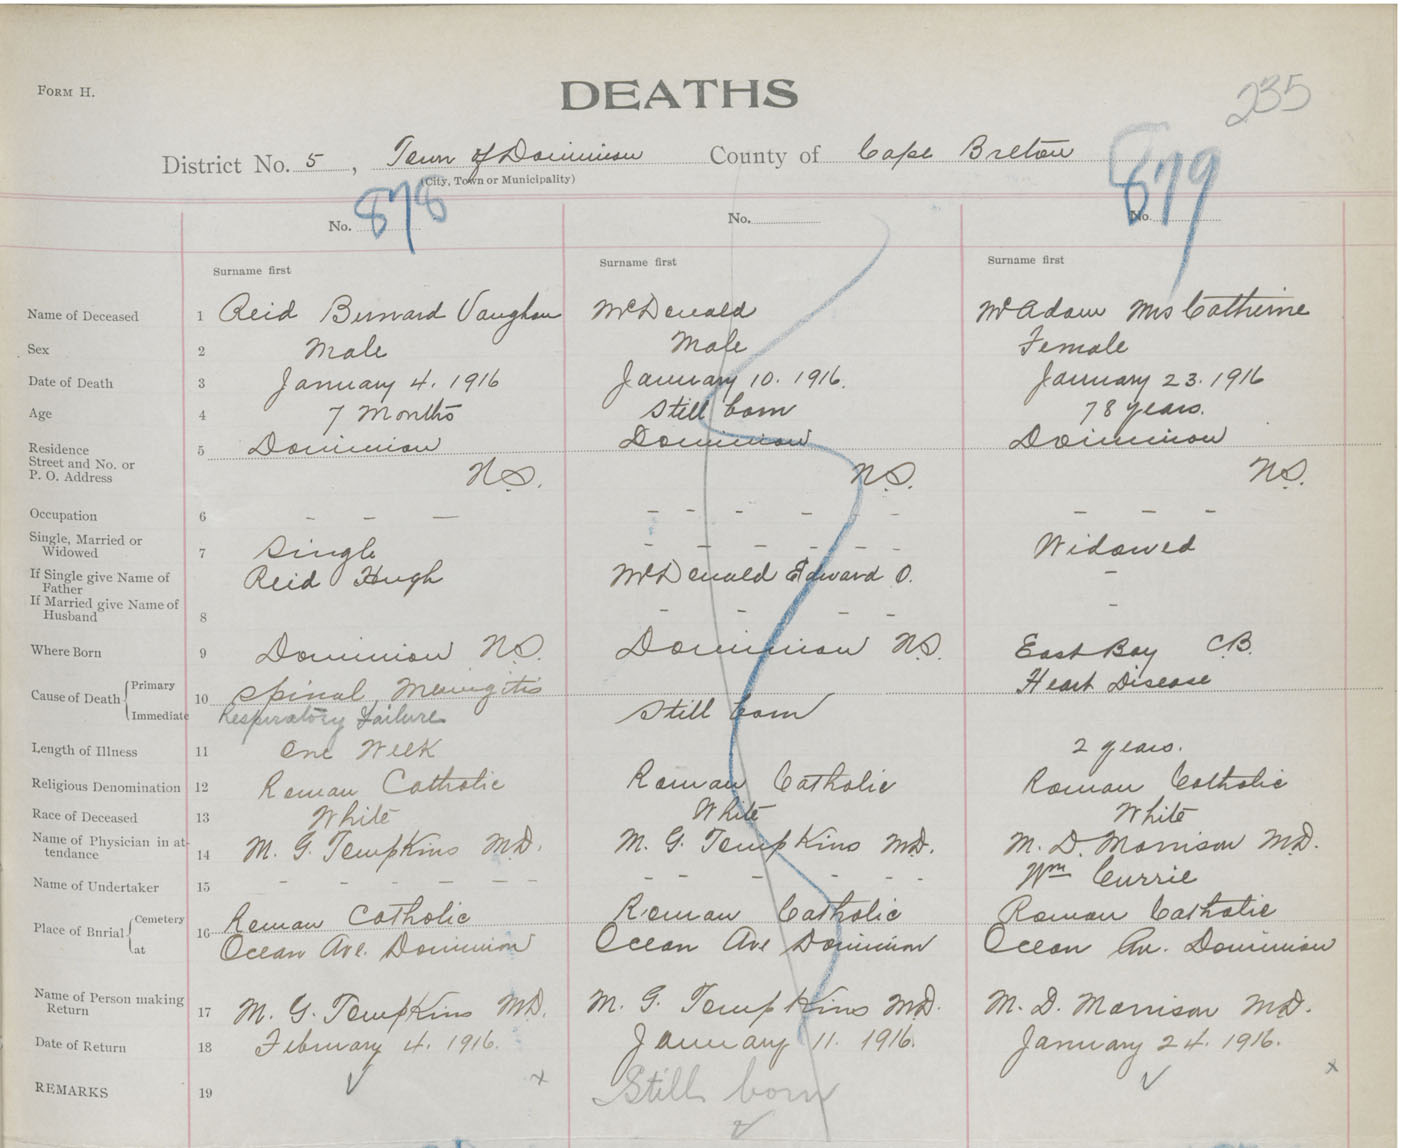 FORM H.
DEATHS
235
District No. 5, Town of Dominion County of Cape Breton
(City, Town or Municipality)
No. 878 No. No. 879
Surname first Surname first Surname first
Name of Deceased 1 Reid Bernard Vaughan McDonald McAdam Mrs Catherine
Sex 2 Male Male Female
Date of Death 3 January 4. 1916 January 10. 1916. January 23. 1916
Age 4 7 Months Still born 78 years.
Residence 5 Dominion Dominion Dominion
Street and No. or
P. O. Address N.S. N.S. N.S.
Occupation 6 – – – – – – – – – – – –
Single, Married or
Widowed 7 Single – – – – – – Widowed
If Single give Name of
Father Reid Hugh McDonald Edward O. –
If Married give Name of
Husband 8 – – – – –
Where Born 9 Dominion N.S. Dominion N.S. East Bay C.B.
Cause of Death { Primary 10 Spinal Meningitis Heart Disease
Immediate Respiratory Failure Still born
Length of Illness 11 One Week 2 years.
Religious Denomination 12 Roman Catholic Roman Catholic Roman Catholic
Race of Deceased 13 White White White
Name of Physician in at-
tendance 14 M. G. Tompkins M.D. M. G. Tompkins M.D. M. D. Morrison M.D.
Name of Undertaker 15 – – – – – – – – – – – – Wm Currie
Place of Burial { Cemetery 16 Roman Catholic Roman Catholic Roman Catholic
at Ocean Ave. Dominion Ocean Ave Dominion Ocean Av. Dominion
Name of Person making
Return 17 M. G. Tompkins M.D. M. G. Tompkins M.D. M. D. Morrison M.D.
Date of Return 18 February 4. 1916. January 11. 1916. January 24. 1916.
REMARKS 19 ✓ x Still born ✓ ✓ x